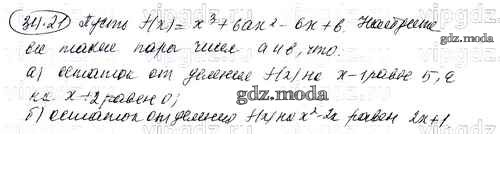 34.21 Пусть f(x) = x³ + 6ax² - 6x + b. Найдите
все такие пары чисел a и b, что:
а) остаток от деления f(x) на x-1 равен 5, а
на x+2 равен 0;
gdz.moda
gdz.moda
б) остаток от деления f(x) на x²-2x равен 2x+1